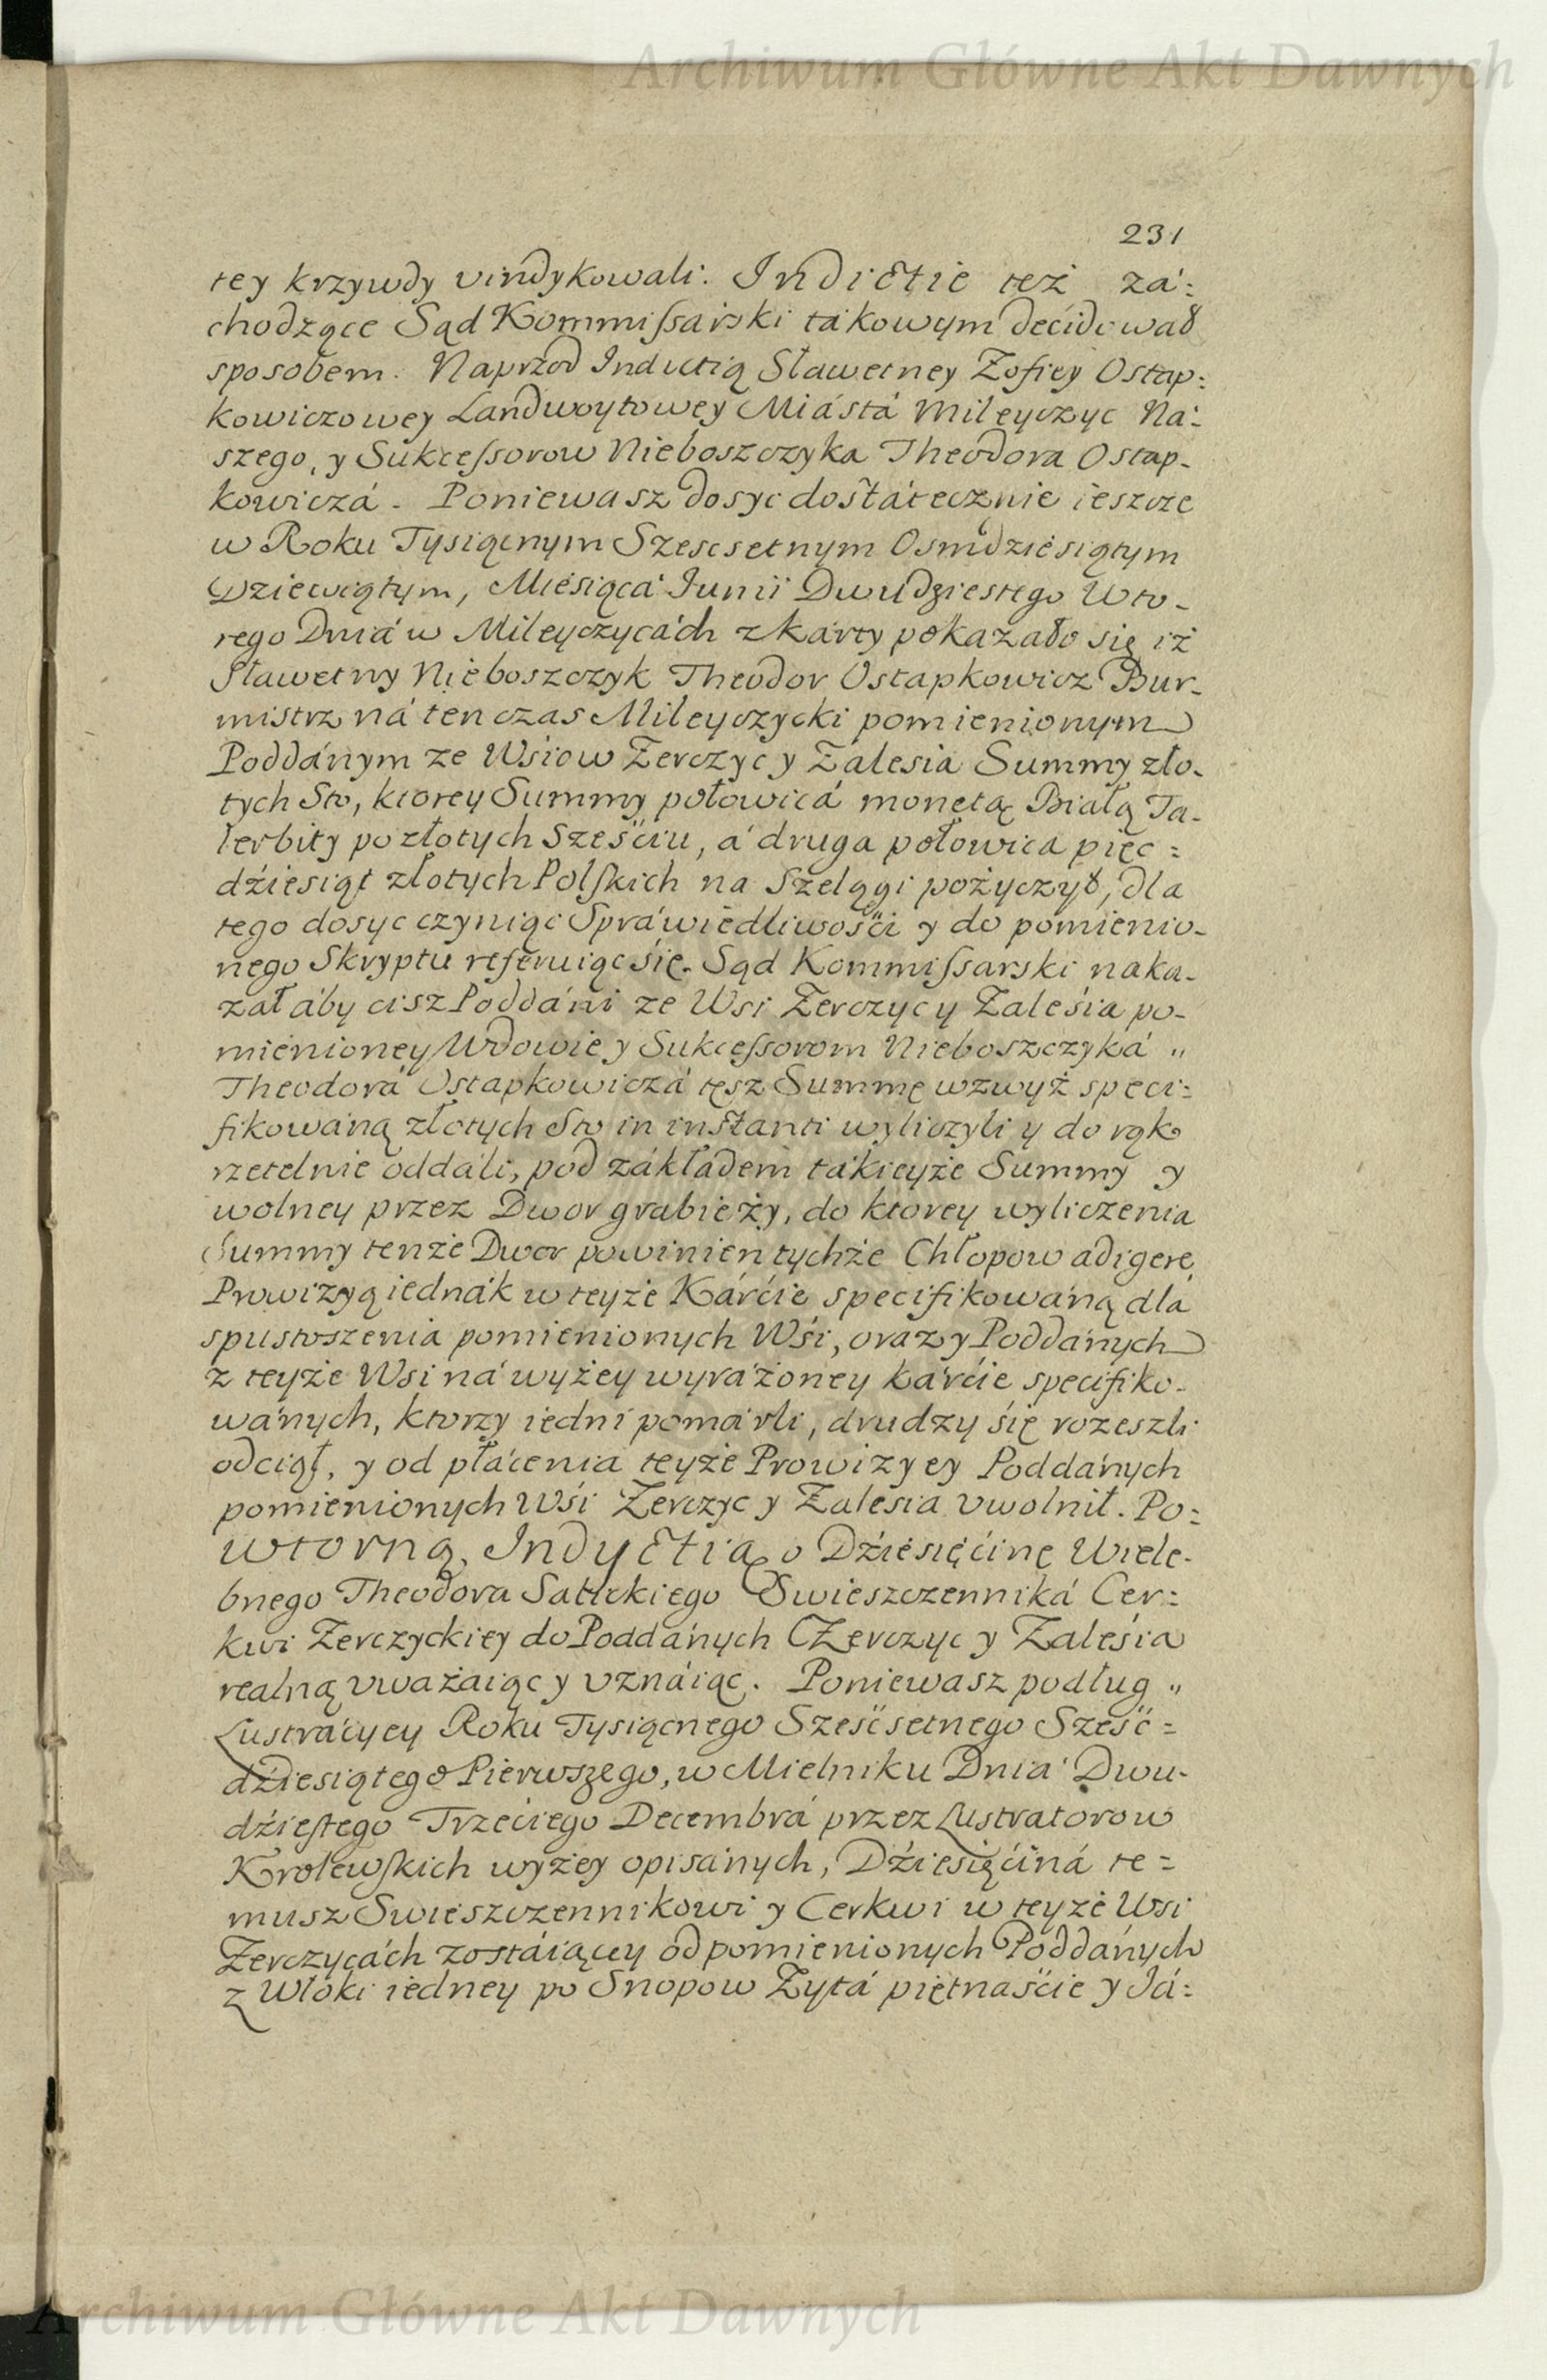 Archiwum Główne Akt Dawnych
231
tey krzywdy vindykowali. Indictie też zá=
chodzące Sąd Kommissarski tákowym decidował
sposobem. Naprzod Inductią Sławetney Zofiey Ostap=
kowiczowey Landwoytowey Miástá Mileyczyc Ná=
szego, y Sukcessorow Nieboszczyka Theodora Ostap-
kowiczá. Poniewasz dosyc dostátecznie ieszcze
w Roku Tysiącnym Szescsetnym Osmdziesiątym
Dziewiątym, Miesiącá Junii Dwudziestego Wto-
rego Dniá w Mileyczycách z kárty pokazało się iż
Sławetny Nieboszczyk Theodor Ostapkowicz Bur-
mistrz ná ten czas Mileyczycki pomienionym
Poddánym ze Wśiow Żerczyc y Zálesia Summy zło-
tych Sto, ktorey Summy połowicá monetą Białą Ta-
lerbity po złotych Sześciu, á druga połowica pięc=
dźiesiąt złotych Polskich na Szelągi pożyczył, dla
tego dosyc czyniąc Spráwiedliwości y do pomienio-
nego Skryptu referuiąc się. Sąd Kommissarski naka-
zał áby cisz Poddáni ze Wsi Żerczyc y Zaleśia po-
mienioney Wdowie y Sukcessorom Nieboszczyká "
Theodorá Ostapkowiczá tęsz Summę wzwyż speci=
fikowáną złotych Sto in instanti wyliczyli y do rąk
rzetelnie oddáli, pod zákładem tákieyże Summy y
wolney przez Dwor grabieży, do ktorey wyliczenia
Summy tenże Dwor powinien tychże Chłopow adigere,
Prowizyą iednák w teyże Kárćie specifikowáną dla
spustoszenia pomienionych Wśi, oraz y Poddánych
z teyże Wsi ná wyżey wyráżoney kárćie specifiko-
wánych, ktorzy iedni pomárli, drudzy się rozeszli
odciął, y od płácenia teyże Prowizyey Poddánych
pomienionych Wśi Żerczyc y Zalesia vwolnił. Po=
wtorną Indyctią o Dźiesięćinę Wiele-
bnego Theodora Swieszczenniká Cer=
kwi Żerczyckiey do Poddánych Żerczyc y Zaleśia
realną vważaiąc y vznáiąc. Poniewasz podług "
Lustrácyey Roku Tysiącnego Sześćsetnego Sześć=
dźiesiątego Pierwszego, w Mielniku Dnia Dwu-
dźiestego Trzećiego Decembrá przez Lustratorow
Krolewskich wyżey opisánych, Dźiesięćiná te=
musz Swieszczennikowi y Cerkwi w teyże Wsi
Żerczycách zostáiącey od pomienionych Poddánych
z Włoki iedney po Snopow Żytá piętnaście y Já=
Archiwum Główne Akt Dawnych